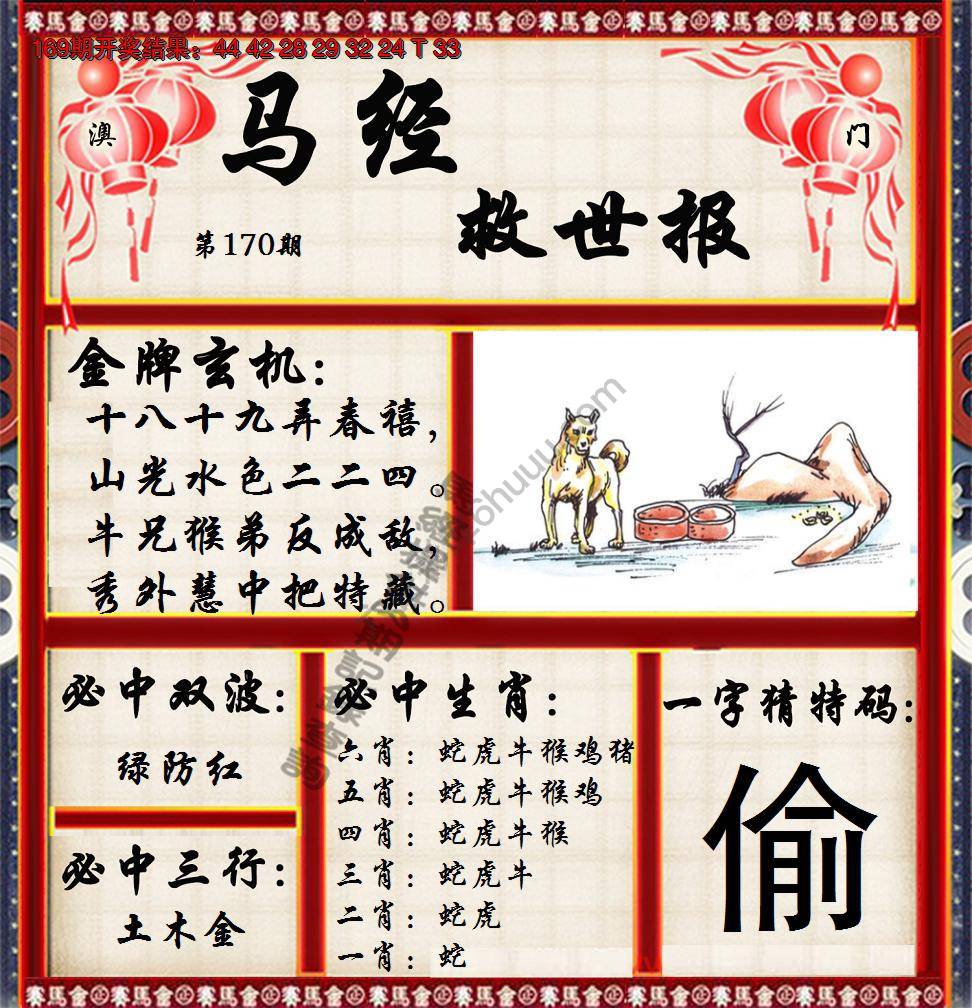 赛馬會
169期开奖结果：44 42 28 29 32 24 T 33
澳门
马经
救世报
第170期
金牌玄机：
十八十九弄春禧，
山光水色二二四。
牛兄猴弟反成敌，
秀外慧中把特藏。
必中双波：
绿防红
必中三行：
土木金
必中生肖：
六肖：蛇虎牛猴鸡猪
五肖：蛇虎牛猴鸡
四肖：蛇虎牛猴
三肖：蛇虎牛
二肖：蛇虎
一肖：蛇
一字猜特码：
偷